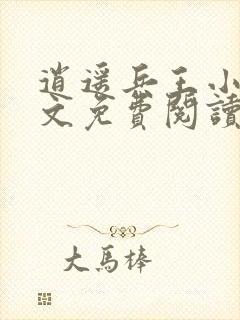 逍遥兵王小
文免費閱讀
大馬棒